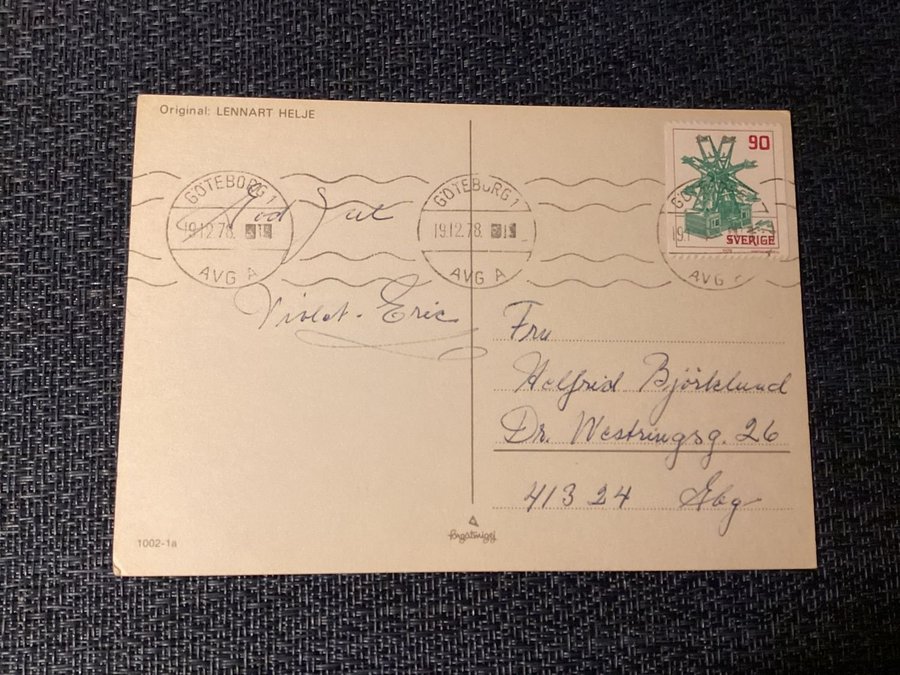 Original: LENNART HELJE
90
SVERIGE
GÖTEBORG 1
19.12.78.
AVG A
GÖTEBORG 1
19.12.78.
AVG A
GÖ
19.1
AVG
God Jul
Violet. Eric
Fru
Helfrid Björklund
Dr. Westringsg. 26
413 24 Gbg
1002-1a